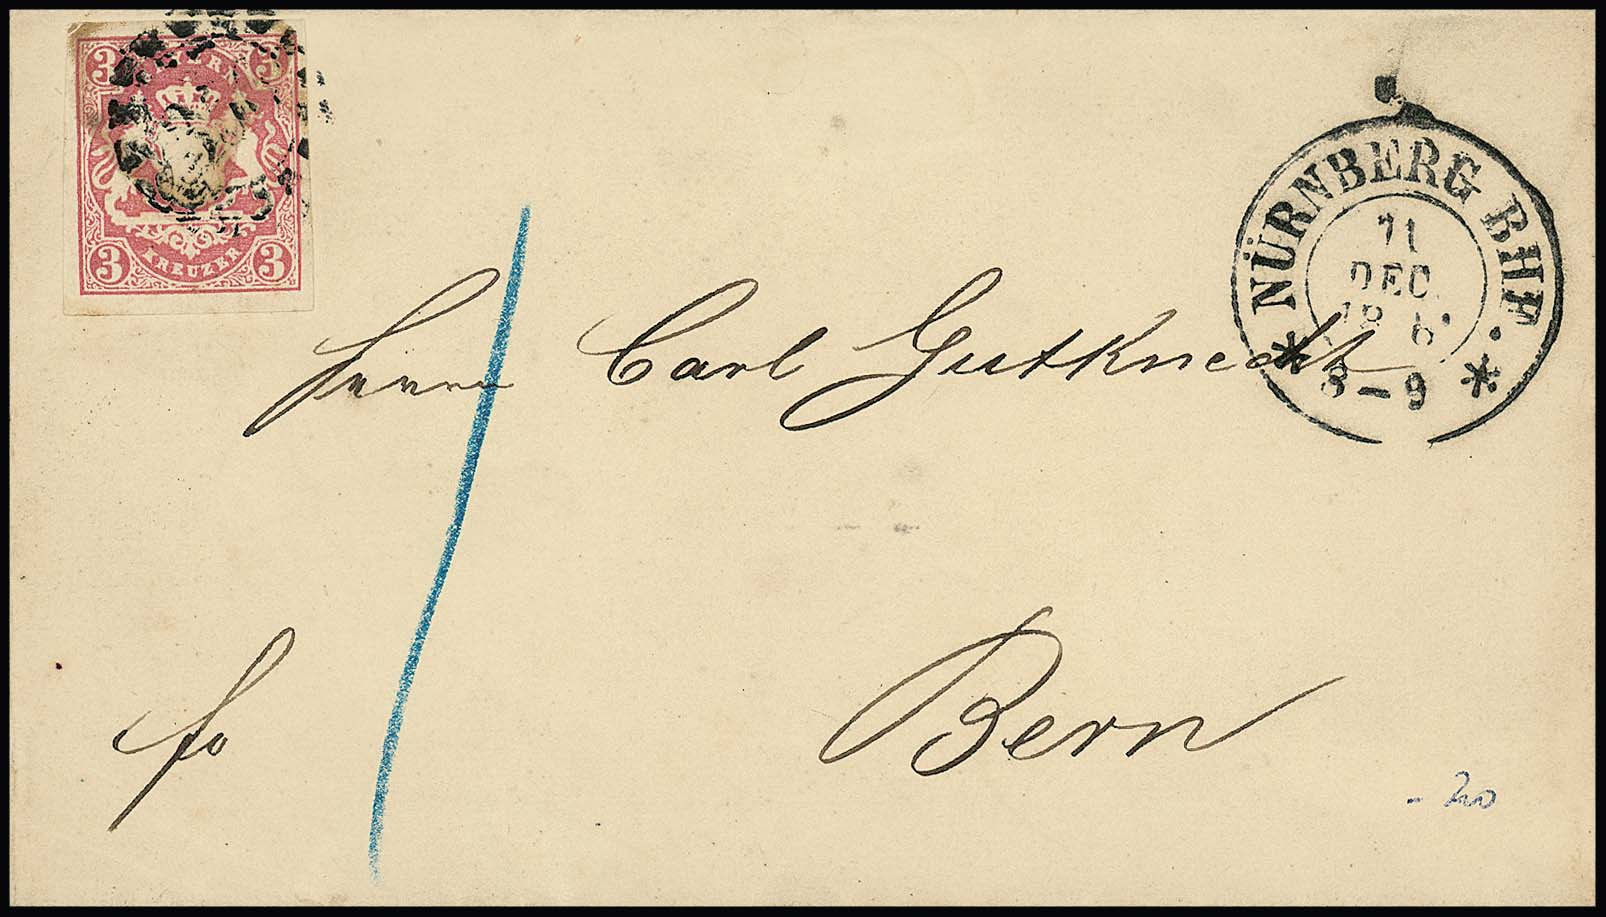 3 3
3 KREUZER 3
NÜRNBERG BHF.
11
DEC.
8-9
Herrn Carl Gutknecht
fo
Bern